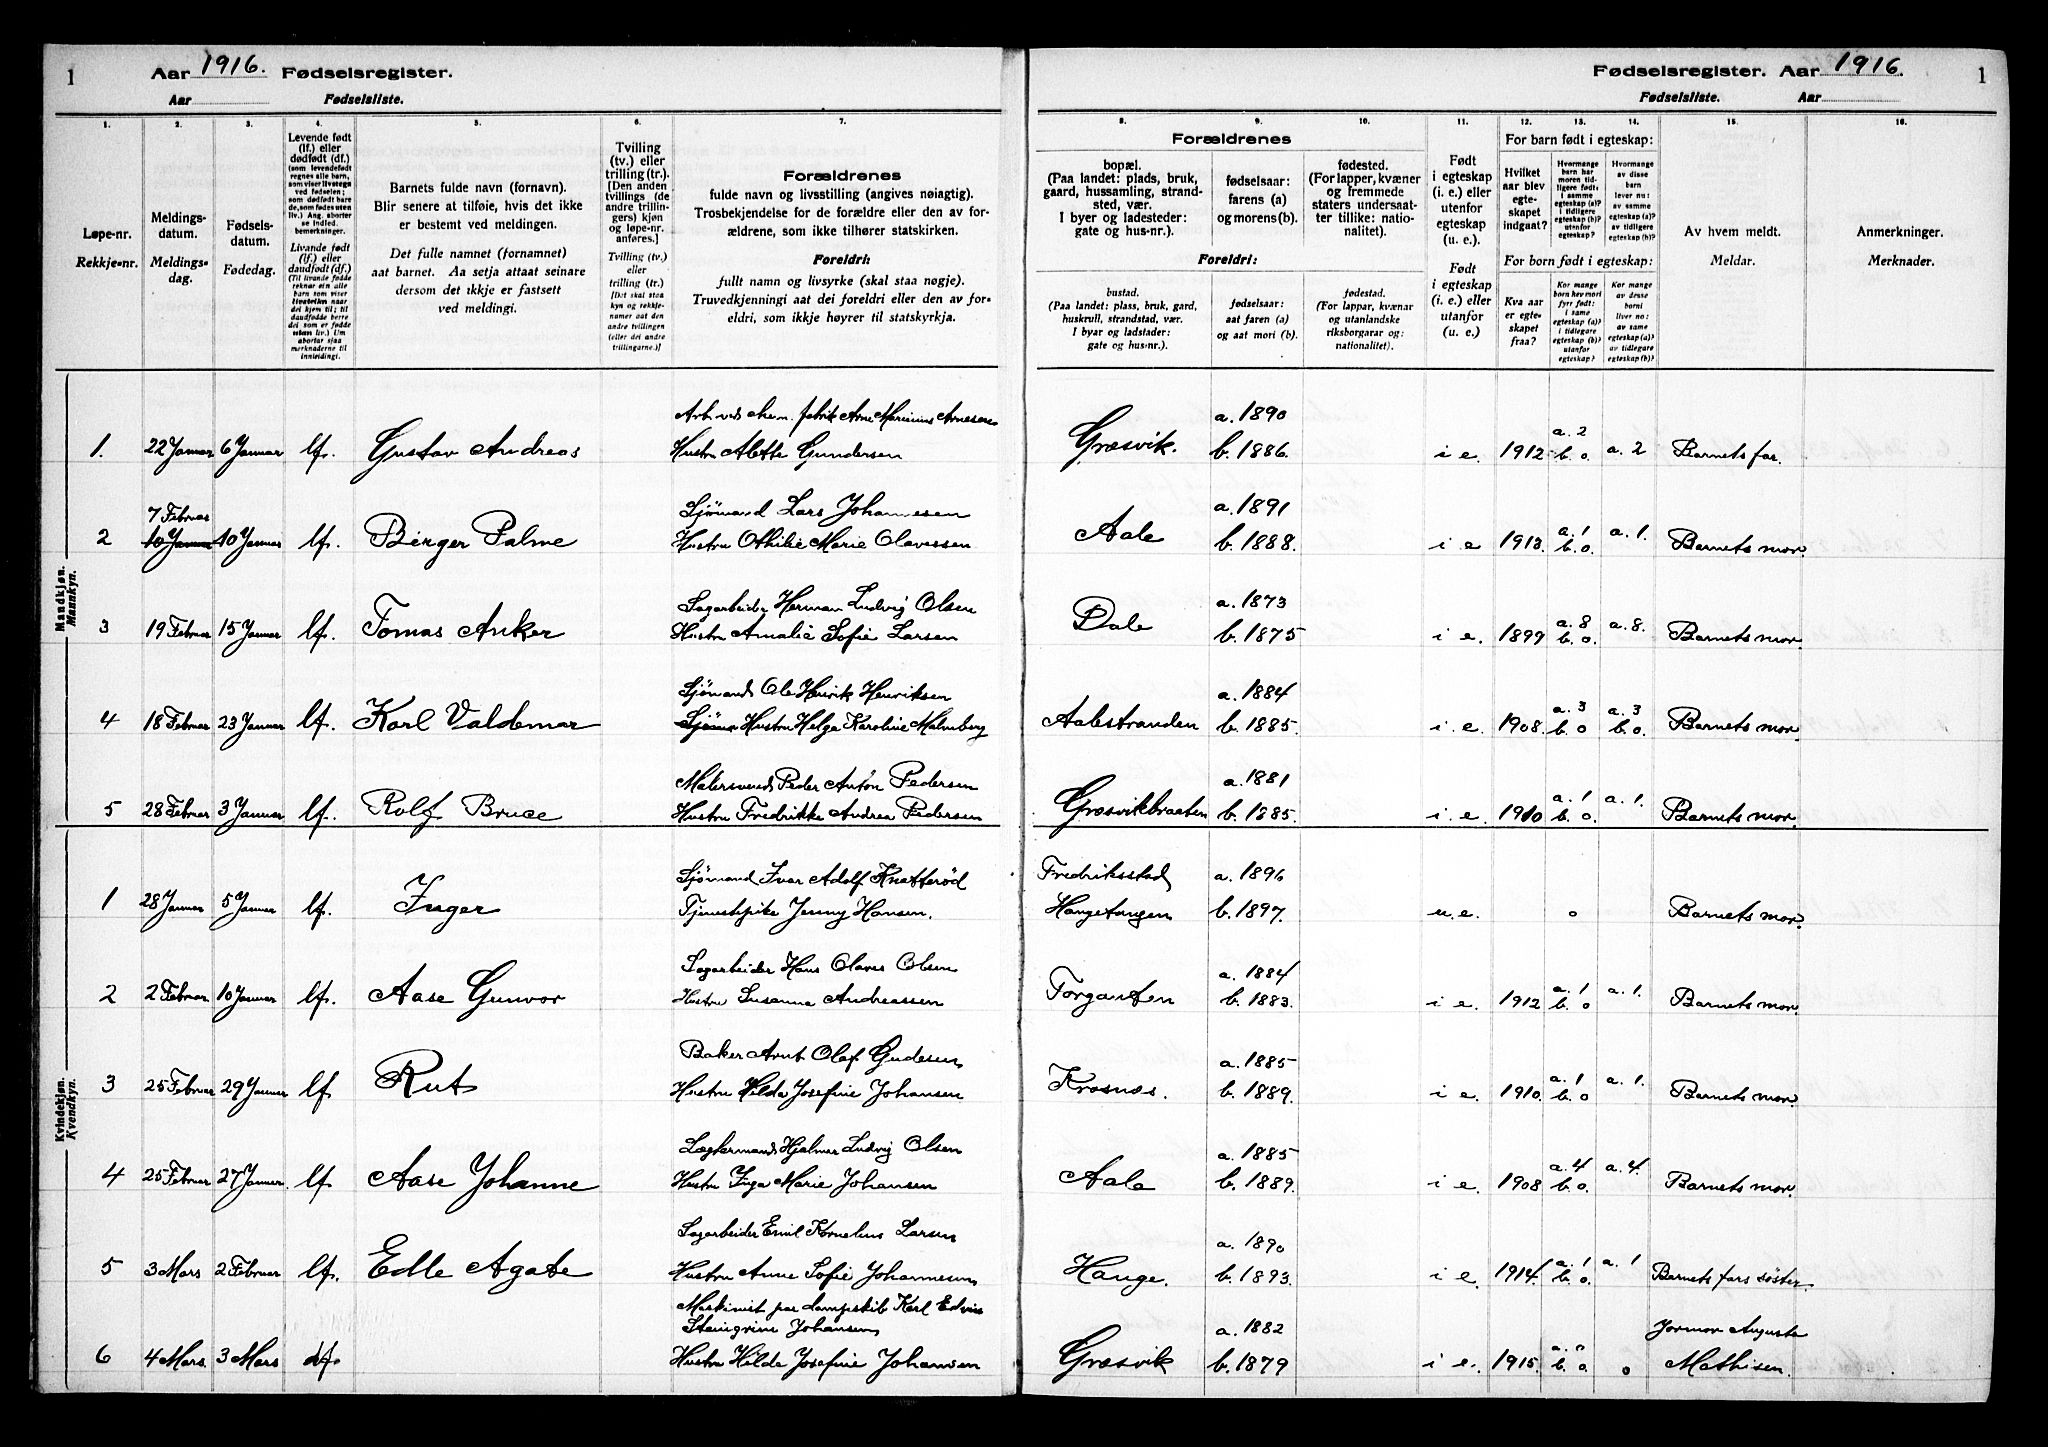 1
Aar 1916. Fødselsregister.
Aar Fødselsliste.
Fødselsregister. Aar 1916.
1
Fødselsliste. Aar
1. 2. 3. 4. 5. 6. 7.
8. 9. 10. 11. 12. 13. 14. 15. 16.
Løpe-nr.
Rekkje-nr.
Meldings-
datum.
Meldings-
dag.
Fødsels-
datum.
Fødedag.
Levende født
(lf.) eller
dødfødt (df.)
(som levendefødt
regnes alle barn,
som viser livstegn
ved fødselen;
som dødfødt bare
de, som fødes uten
liv.) Ang. aborter
se indled.
bemerkninger.
Livande født
(lf.) eller
daudfødt (df.)
(Til livande fødde
reknar ein alle
born som viser
livsteikn naar
dei kjem til; til
daudfødde berre
dei som er fødde
utan liv.) Um
abortar sjaa
merknaderne til
innleidingi.
Barnets fulde navn (fornavn).
Blir senere at tilføie, hvis det ikke
er bestemt ved meldingen.
Det fulle namnet (fornamnet)
aat barnet. Aa setja attaat seinare
dersom det ikkje er fastsett
ved meldingi.
Tvilling
(tv.) eller
trilling (tr.).
[Den anden
tvillings (de
andre trillin-
gers) kjøn
og løpe-nr.
anføres.]
Tvilling (tv.)
eller
trilling (tr.)
[Det skal staa
kyn og rekkje-
namer aat den
andre tvillingen
(eller dei andre
trillingarne.)]
Forældrenes
fulde navn og livsstilling (angives nøiagtig).
Trosbekjendelse for de forældre eller den av for-
ældrene, som ikke tilhører statskirken.
Foreldri:
fullt namn og livsyrke (skal staa nøgje).
Truvedkjenningi aat dei foreldri eller den av for-
eldri, som ikkje høyrer til statskyrkja.
Forældrenes
bopæl.
(Paa landet: plads, bruk,
gaard, hussamling, strand-
sted, vær.
I byer og ladesteder:
gate og hus-nr.).
fødselsaar:
farens (a)
og morens (b).
fødested.
(For lapper, kvæner
og fremmede
staters undersaat-
ter tillike: natio-
nalitet).
Foreldri:
bustad.
(Paa landet: plass, bruk, gard,
huskrull, strandstad, vær.
I byar og ladstader:
gate og hus-nr.).
fødselsaar:
aat faren (a)
og aat mori (b).
fødestad.
(For lappar, kvænar
og utanlandske
riksborgarar og:
nationalitet).
Født
i egteskap
(i. e.) eller
utenfor
egteskap
(u. e.).
Født
i egteskap
(i. e.) eller
utanfor
egteskap
(u. e.).
For barn født i egteskap:
Hvilket
aar blev
egte-
skapet
indgaat?
Hvormange
barn har
moren tid-
ligere født:
i samme
egteskap (a)?
i tidligere
egteskap (b)?
utenfor
egteskap?
Hvormange
av disse
barn
lever nu:
av samme
egteskap (a)?
av tidligere
egteskap (b)?
For born født i egteskap:
Kva aar
er egte-
skapet
fraa?
Kor mange
born hev mori
fyrr født:
i same
egteskap (a)?
i tidlegare
egteskap (b)?
utanfor
egteskap?
Kor mange
av desse
borni
liver no:
av same
egteskap (a)?
av tidlegare
egteskap (b)?
Av hvem meldt.
Meldar.
Anmerkninger.
Merknader.
Mandkjøn.
Mannkyn.
Arb. ved chem. fabrik Arne Marinius Arnesen a. 1890
1. 22 Januar 6 Januar lf. Gustav Andreas Hustru Alette Gundersen Græsvik. b. 1886. i e. 1912 a. 2 b. o. a. 2 Barnets far.
7 Februar Sjømand Lars Johannesen a. 1891
2 10 Januar 10 Januar lf. Birger Palme Hustru Othilie Marie Olavessen Aale b. 1888. i e 1913. a. 1 b. o. a. 1. Barnets mor.
Sagarbeider Herman Ludvig Olsen a. 1873
3 19 Februar 15 Januar lf. Tomas Anker Hustru Amalie Sofie Larsen Dale b. 1875 i e. 1899 a. 8 b. o. a. 8. Barnets mor.
Sjømand Ole Henrik Henriksen a. 1884
4 18 Februar 23 Januar lf. Karl Valdemar Sjøman Hustru Helga Karoline Malmberg Aalestranden b. 1885. i. e. 1908. a. 3 b. o a. 3 b. o. Barnets mor.
Malersvend Peder Anton Pedersen a. 1881
5 28 Februar 3 Januar lf. Rolf Bruce Hustru Fredrikke Andrea Pedersen Græsvikbraaten b. 1885. i. e. 1910 a. 1 b. o. a. 1. Barnets mor.
Kvindekjøn.
Kvendkyn.
Sjømand Ivar Adolf Knatterød Fredriksstad a. 1896
1 28 Januar 5 Januar lf. Inger Tjenestepike Jenny Hansen. Haugetangen b. 1897. u. e. o Barnets mor.
Sagarbeider Hans Olaves Olsen a. 1884
2 2 Februar 10 Januar lf. Aase Gunvor Hustru Susanna Andreassen Torgauten b. 1883. i e. 1912 a. 1 b. o a. 1. Barnets mor.
Baker Arnt Olaf Gudesen a. 1885
3 25 Februar 29 Januar lf Rut Hustru Hilda Josefine Johansen Krosnæs. b. 1889. i e. 1910. a. 1 b. o a. 1. Barnets mor.
Lagermand Hjalmar Ludvig Olsen a. 1885
4 25 Februar 27 Januar. lf Aase Johanne Hustru Inga Marie Johansen Aale b. 1889. i e. 1908 a. 4 b. o. a. 4. Barnets mor.
Sagarbeider Emil Kornelius Larsen a. 1890
5 3 Mars 2 Februar lf. Edle Agate Hustru Anne Sofie Johannesen Hauge. b. 1893. i e. 1914. a. 1 b. o. a. 1 Barnets fars søster.
Maskinist paa dampskib Karl Edvin
Steingrim Johansen a. 1882 Jormor Augusta
6 4 Mars. 3 Mars df. Hustru Hilda Josefine Johansen Græsvik b. 1879 i e. 1915. a. o b. o. o Mathisen.